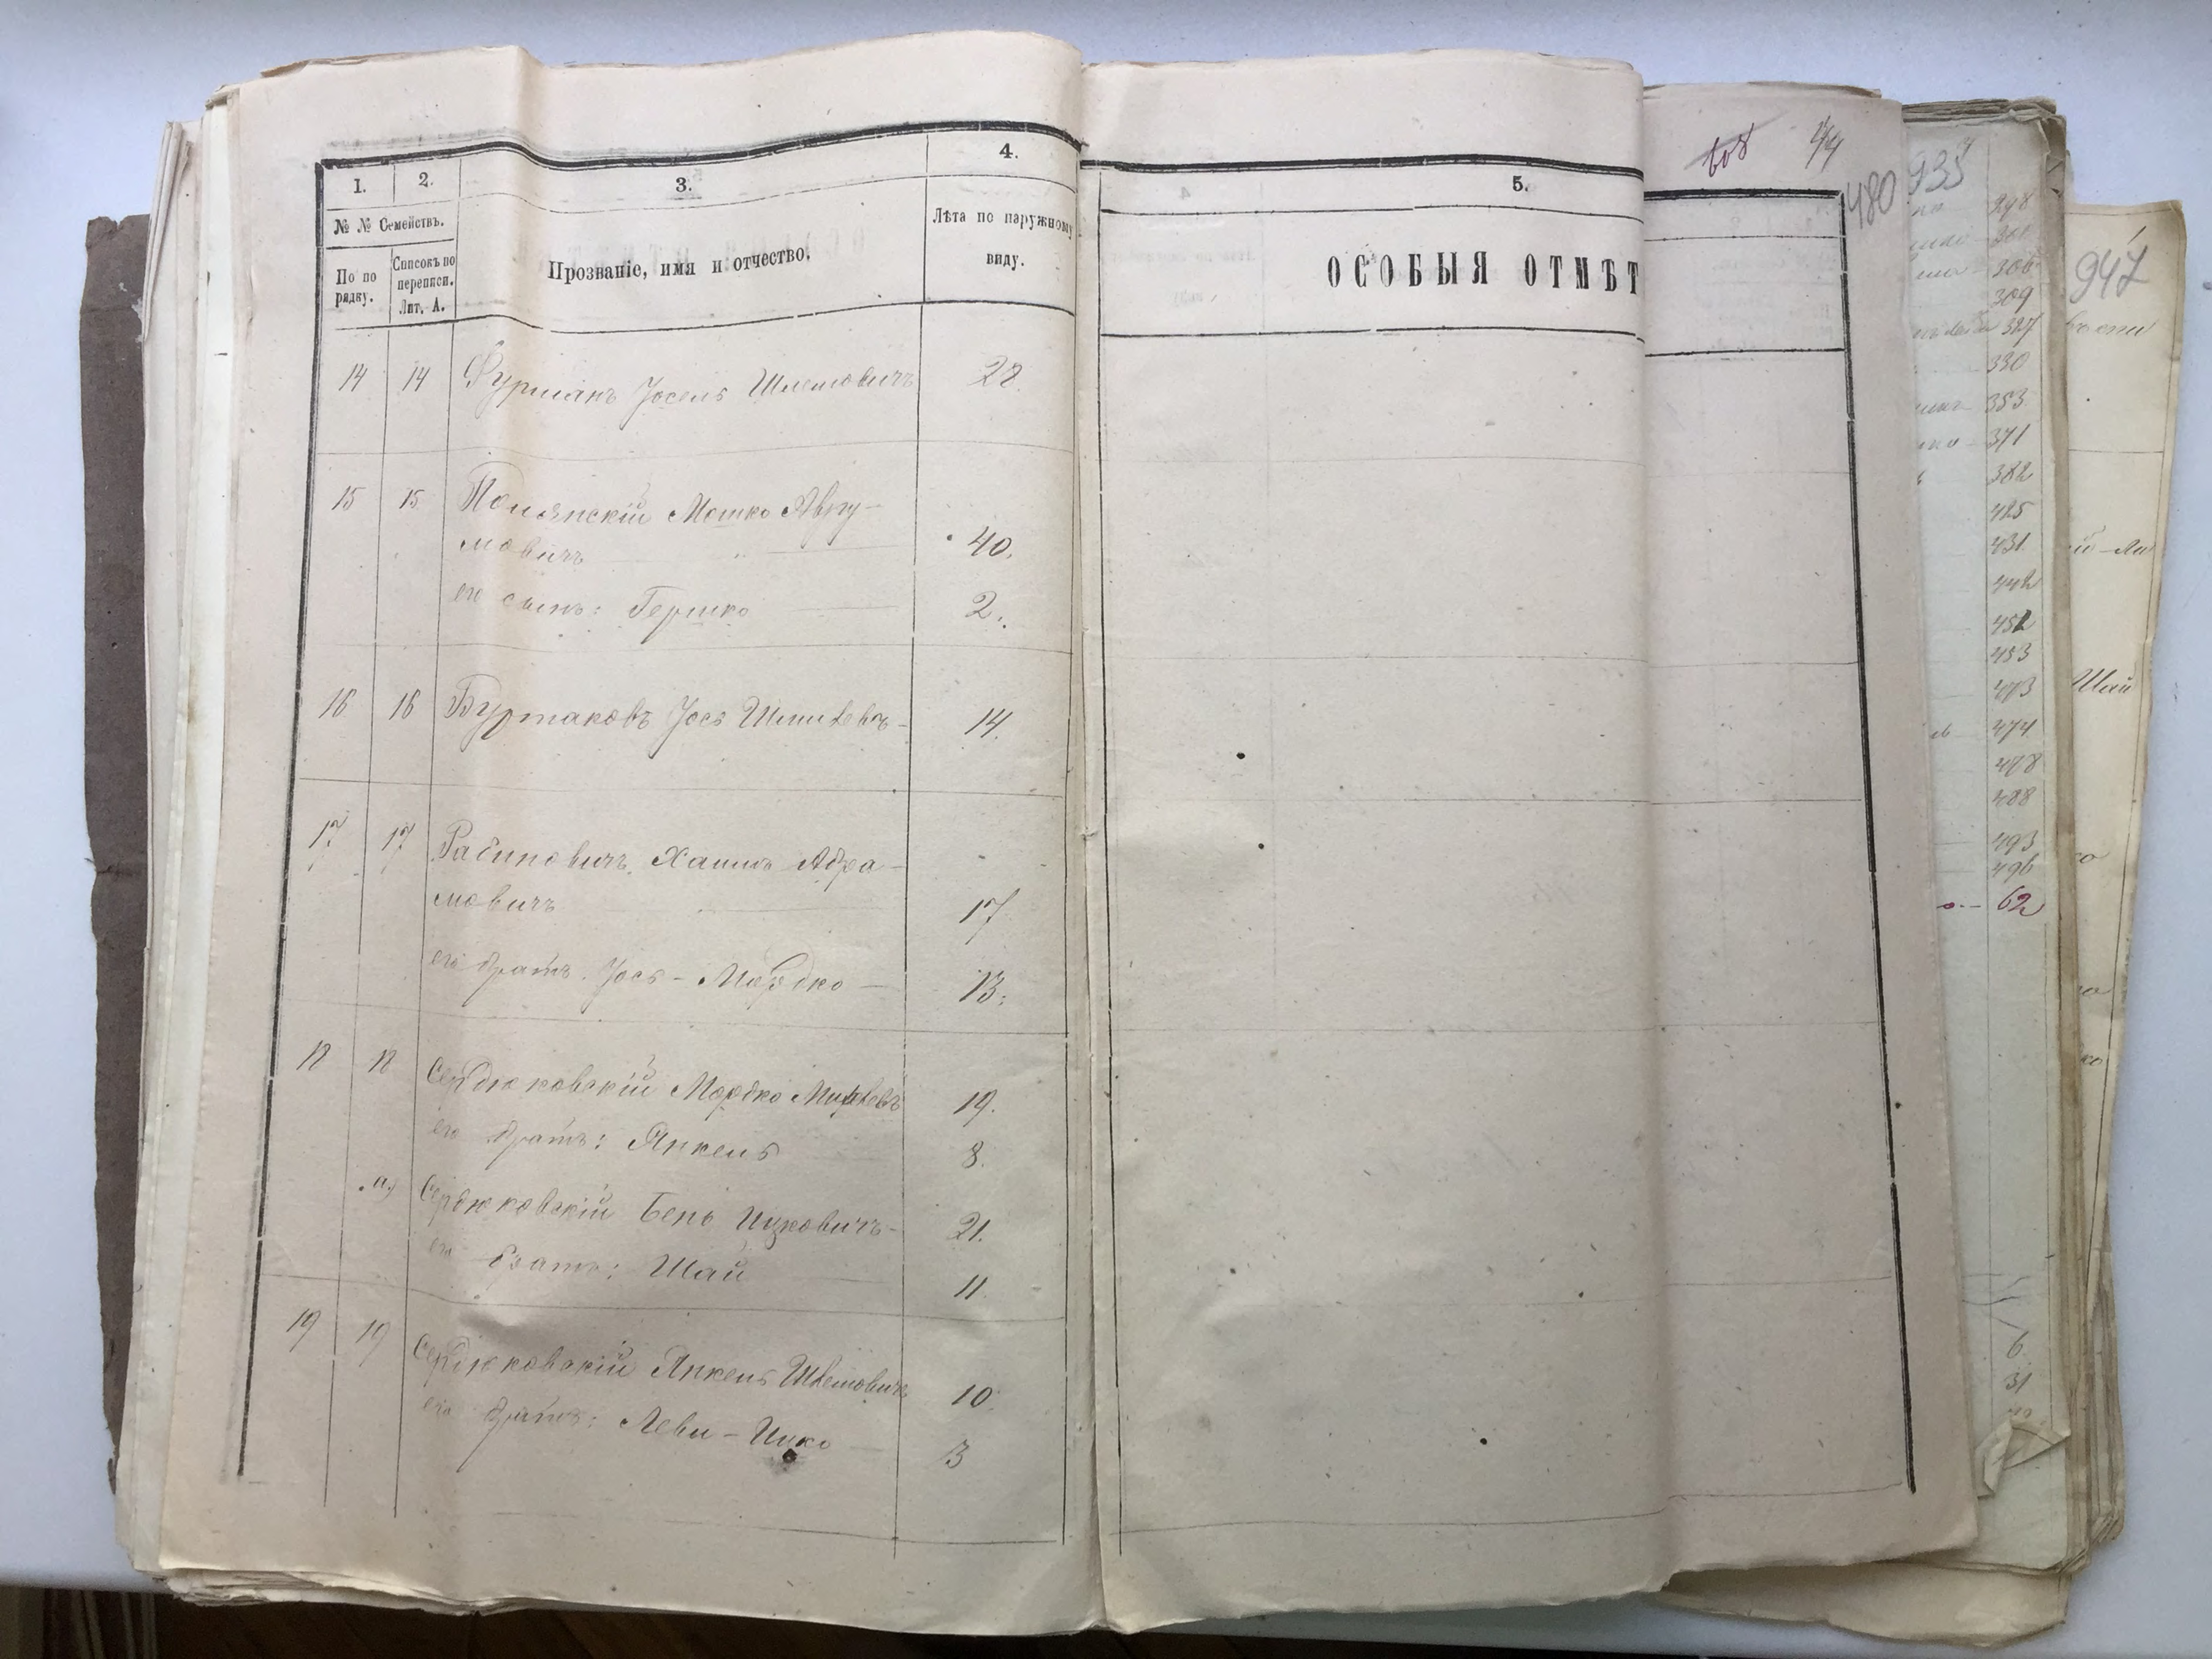 1.
2.
3.
4.
№ № Семействъ.
По по
рядку.
Списокъ по
переписи.
Лит. А.
Прозваніе, имя и отчество.
Лѣта по наружному
виду.
14 14 Фурманъ Іосель Шлемовичъ 28.
15 15 Полянскій Мошко Авру-
мовичъ 40.
его сынъ: Гершко 2.
16 16 Бурлаковъ Іось 14.
17 17 Рабиновичъ Хаимъ Абра-
мовичъ 17
его братъ. Іось - Мордко - 13.
18 18 Сердюковскій Мордко 19.
его братъ: Янкель 8.
а) Сердюковскій Бень Ицковичъ - 21.
его братъ: Шай 11
19 19 Сердюковскій Янкель Шлемовичъ 10.
его братъ: Леви - Ицко 3
5.
ОСОБЫЯ ОТМѢТ
608
480
935
298
309
327
330
353
371
382
425
431
442
452
453
474
488
493
496
62
6
31
947
Шай